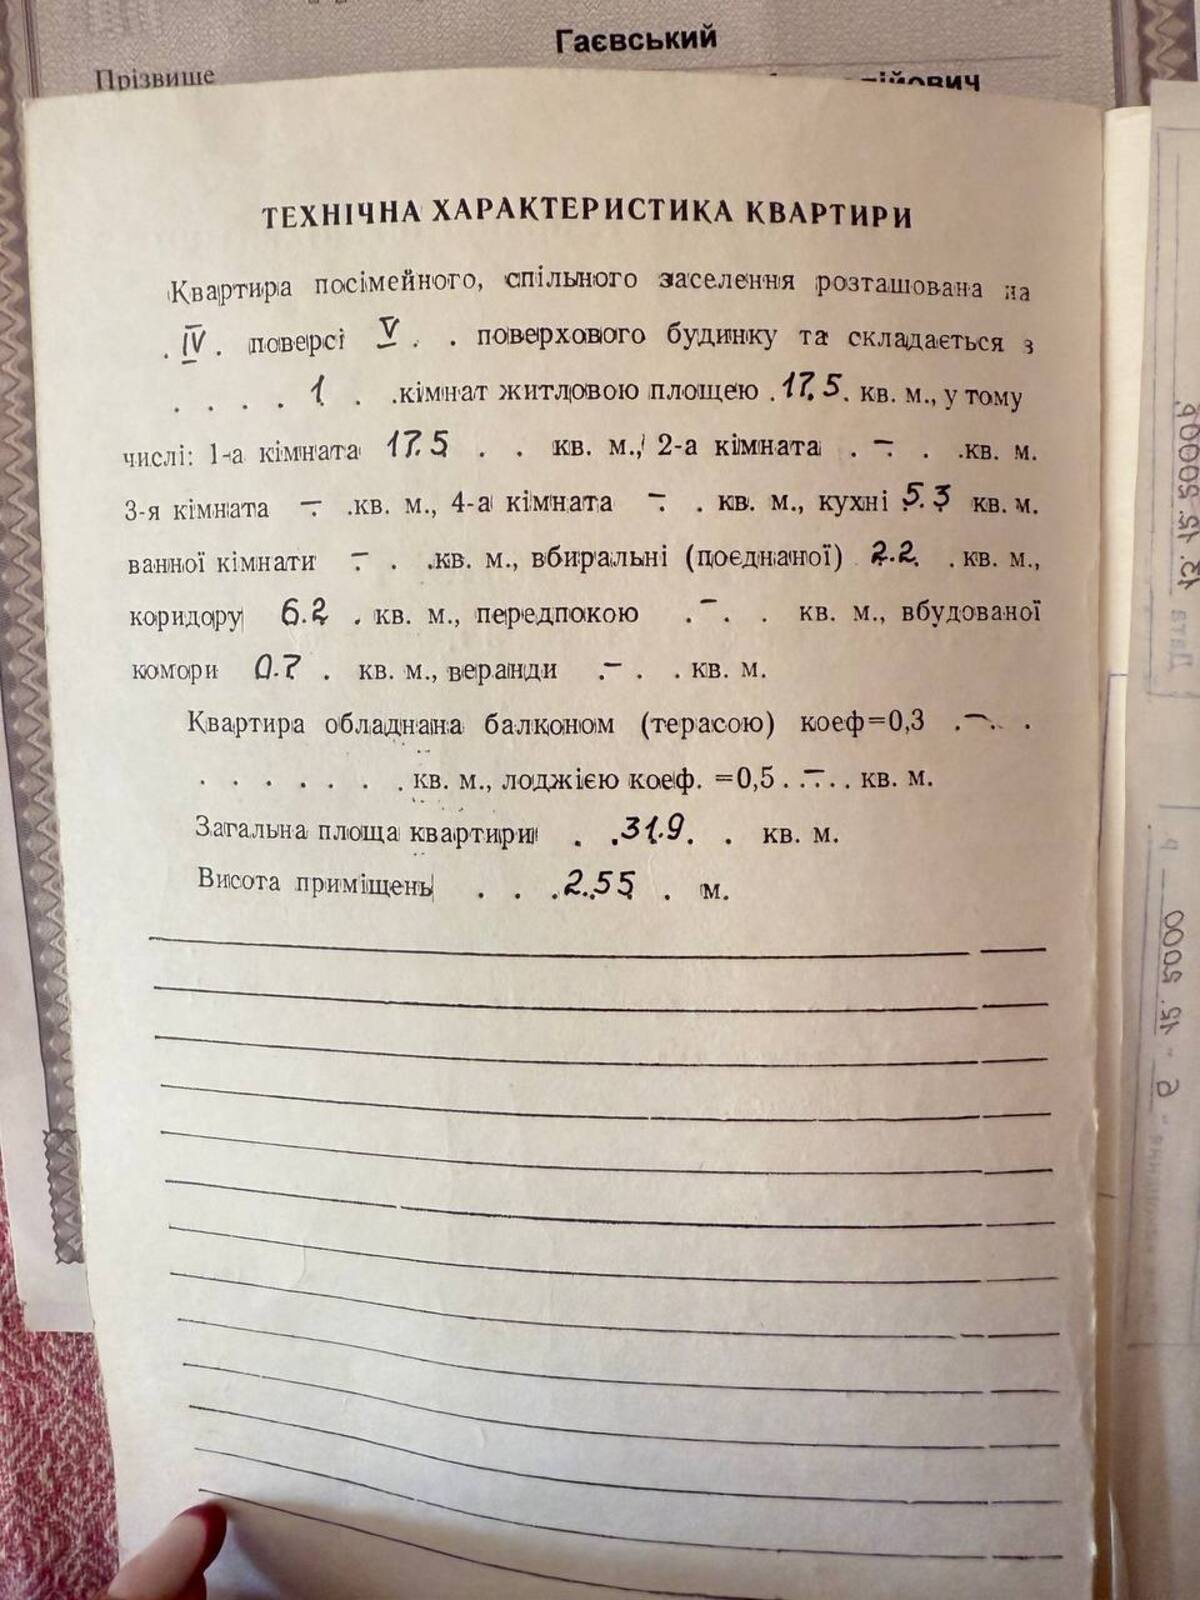 Гаєвський
Прізвище
ТЕХНІЧНА ХАРАКТЕРИСТИКА КВАРТИРИ
Квартира посімейного, спільного заселення розташована на
. IV . поверсі V . . поверхового будинку та складається з
. . . . 1 . .кімнат житловою площею .17.5. кв. м., у тому
числі: 1-а кімната 17.5 . . кв. м., 2-а кімната . – . .кв. м.
3-я кімната – .кв. м., 4-а кімната – . кв. м., кухні 5.3 кв. м.
ванної кімнати – . .кв. м., вбиральні (поєднаної) 2.2. . кв. м.,
коридору 6.2 . кв. м., передпокою . – . . кв. м., вбудованої
комори 0.7 . кв. м., веранди . – . . кв. м.
Квартира обладнана балконом (терасою) коеф=0,3 . – . .
. . . . . . . кв. м., лоджією коеф. =0,5 . . – . . кв. м.
Загальна площа квартири . .31.9. . кв. м.
Висота приміщень . . .2.55 . м.
13.12.2000р
Дата
6 " 12. 2000 р